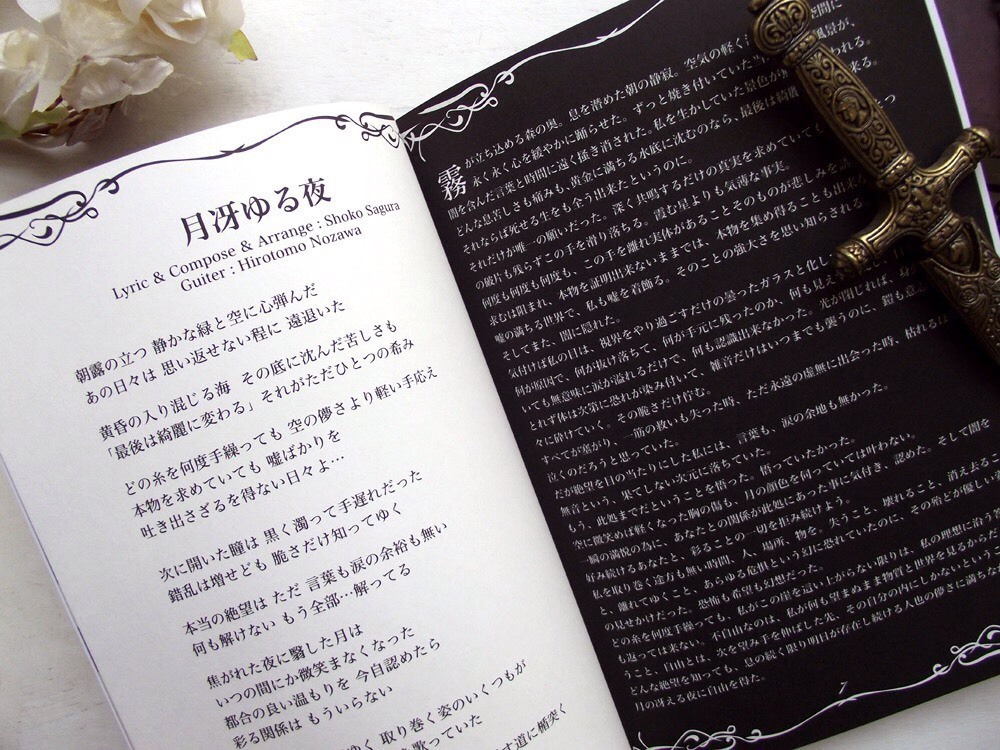 月冴ゆる夜
Lyric & Compose & Arrange : Shoko Sagura
Guiter : Hirotomo Nozawa
朝露の立つ 静かな緑と空に心弾んだ
あの日々は 思い返せない程に 遠退いた
黄昏の入り混じる海 その底に沈んだ苦しさも
「最後は綺麗に変わる」それがただひとつの希み
どの糸を何度手繰っても 空の儚さより軽い手応え
本物を求めていても 嘘ばかりを
吐き出さざるを得ない日々よ…
次に開いた瞳は 黒く濁って手遅れだった
錯乱は増せども 脆さだけ知ってゆく
本当の絶望は ただ 言葉も涙の余裕も無い
何も解けない もう全部…解ってる
焦がれた夜に翳した月は
いつの間にか微笑まなくなった
都合の良い温もりを 今自認めたら
彩る関係は もういらない
ゆく 取り巻く姿のいくつもが
歌っていた
す道に楯突く
霧が立ち込める森の奥。息を潜めた朝の静寂。空気の軽く
空間に
永く永く心を緩やかに踊らせた。ずっと焼き付いていた当
風景が、
間を含んだ言葉と時間に遠く掻き消された。私を生かしていた景色が
われる。
どんな息苦しさも痛みも、黄金に満ちる水底に沈むのなら、最後は綺麗
来る。
それならば死せる生をも全う出来たというのに。
それだけが唯一の願いだった。深く共鳴するだけの真実を求めていても
の破片も残らずこの手を滑り落ちる。霞む星よりも気薄な事実。
何度も何度も何度も、この手を離れ実体があることそのものが悲しみを
求むは阻まれ、本物を証明出来ないままでは、本物を集め得ることも出来
嘘の満ちる世界で、私も嘘を着飾る。そのことの強大さを思い知らされる
そしてまた、闇に隠れた。
気付けば私の目は、視界をやり過ごすだけの曇ったガラスと化し
何が原因で、何が抜け落ちて、何が手元に残ったのか、何も見え
いても無意味に涙が溢れるだけで、何も認識出来なかった。光が閉じれば、身
とれず体は次第に恐れが染み付いて、雑音だけはいつまでも襲うのに、鎧も意
々に砕けていく。その脆さだけ佇む。
すべてが墓がり、一筋の救いも失った時、ただ永遠の虚無に出会った時、枯れるほ
泣くのだろうと思っていた。
だが絶望を目の当たりにした私には、言葉も、涙の余地も無かった。
無音という、果てしない次元に落ちていた。
もう、此処までだということを悟った。悟っていたかった。
空に微笑めば軽くなった胸の傷も、月の顔色を伺っていては叶わない。そして闇を
一瞬の満悦の為に、あなたとの関係が此処にあった事に気付き、認めた。
好み続けるあなたと、彩ることの一切を拒み続けよう。
私を取り巻く途方も無い時間、人、場所、物を。失うこと、壊れること、消え去るこ
と、離れてゆくこと、あらゆる危惧という幻に恐れていたのに、その殆どが優しい
の見せかけだった。恐怖も希望も幻想だった。
どの糸を何度手繰っても、私がこの崖を這い上がらない限りは、私の理想に沿う
も返っては来ない。不自由なのは、私が何も望まぬまま物質と世界を見るからだ
うこと、自由とは、次を望み手を伸ばした先、その自分の内にしかないという
どんな絶望を知っても、息の続く限り明日が存在し続ける人也の儚さに満ちな
月の冴える夜に自由を得た。
7